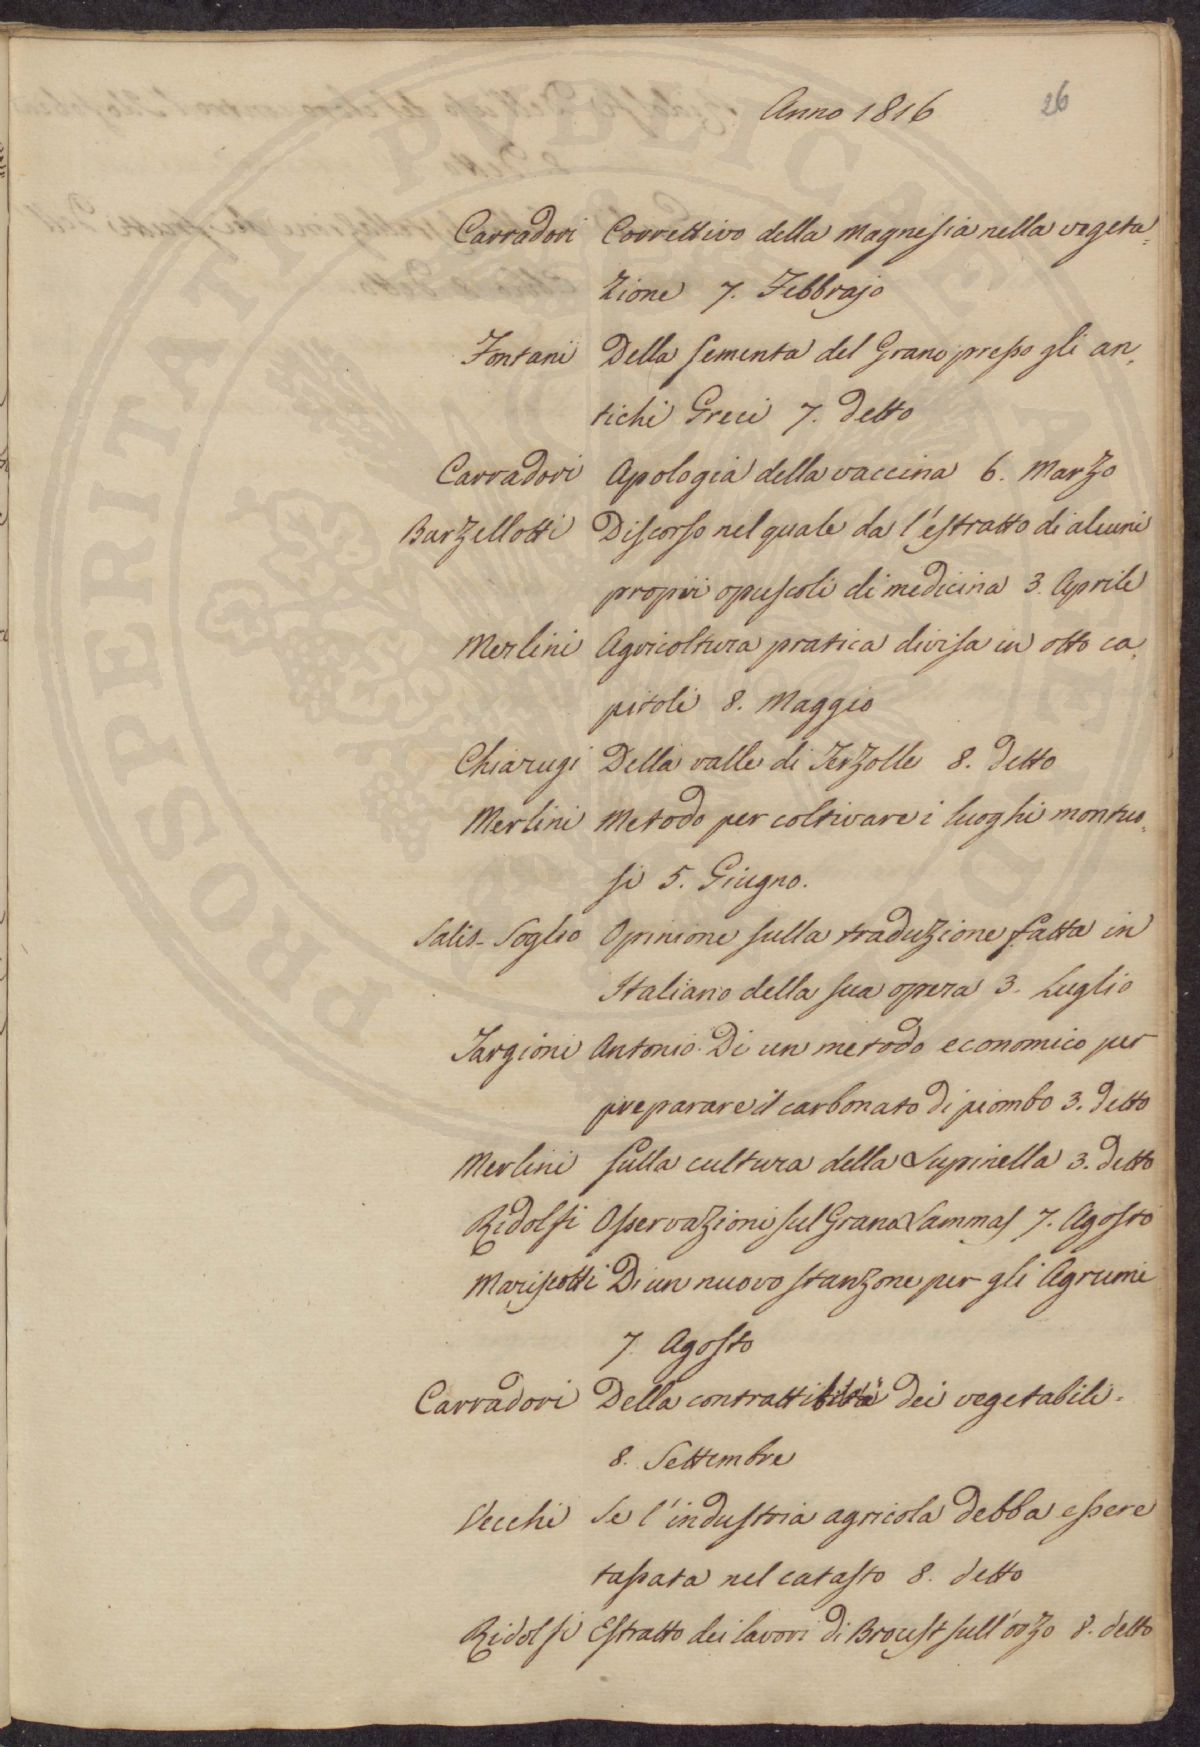 Anno 1816
26
Carradori Correttivo della Magnesia nella vegeta=
zione 7. Febbrajo
Fontani Della sementa del Grano presso gli an=
tichi Greci 7. detto
Carradori Apologia della vaccina 6. Marzo
Barzellotti Discorso nel quale da l'estratto di alcuni
proprii opuscoli di medicina 3. Aprile
Merlini Agricoltura pratica divisa in otto ca=
pitoli 8. Maggio
Chiarugi Della valle di Terzolle 8. detto
Merlini Metodo per coltivare i luoghi montuo=
si 5. Giugno.
Salis-Soglio Opinione sulla traduzione fatta in
Italiano della sua opera 3. Luglio
Targioni Antonio. Di un metodo economico per
preparare il carbonato di piombo 3. detto
Merlini Sulla cultura della Lupinella 3. detto
Ridolfi Osservazioni sul Grano Lammas 7. Agosto
Mariscotti Di un nuovo stanzone per gli Agrumi
7. Agosto
Carradori Della contrattibilità dei vegetabili.
8. Settembre
Vecchi Se l'industria agricola debba essere
tassata nel catasto 8. detto
Ridolfi Estratto dei lavori di Proust sull'orzo 8. detto
PROSPERITATI PUBLICAE